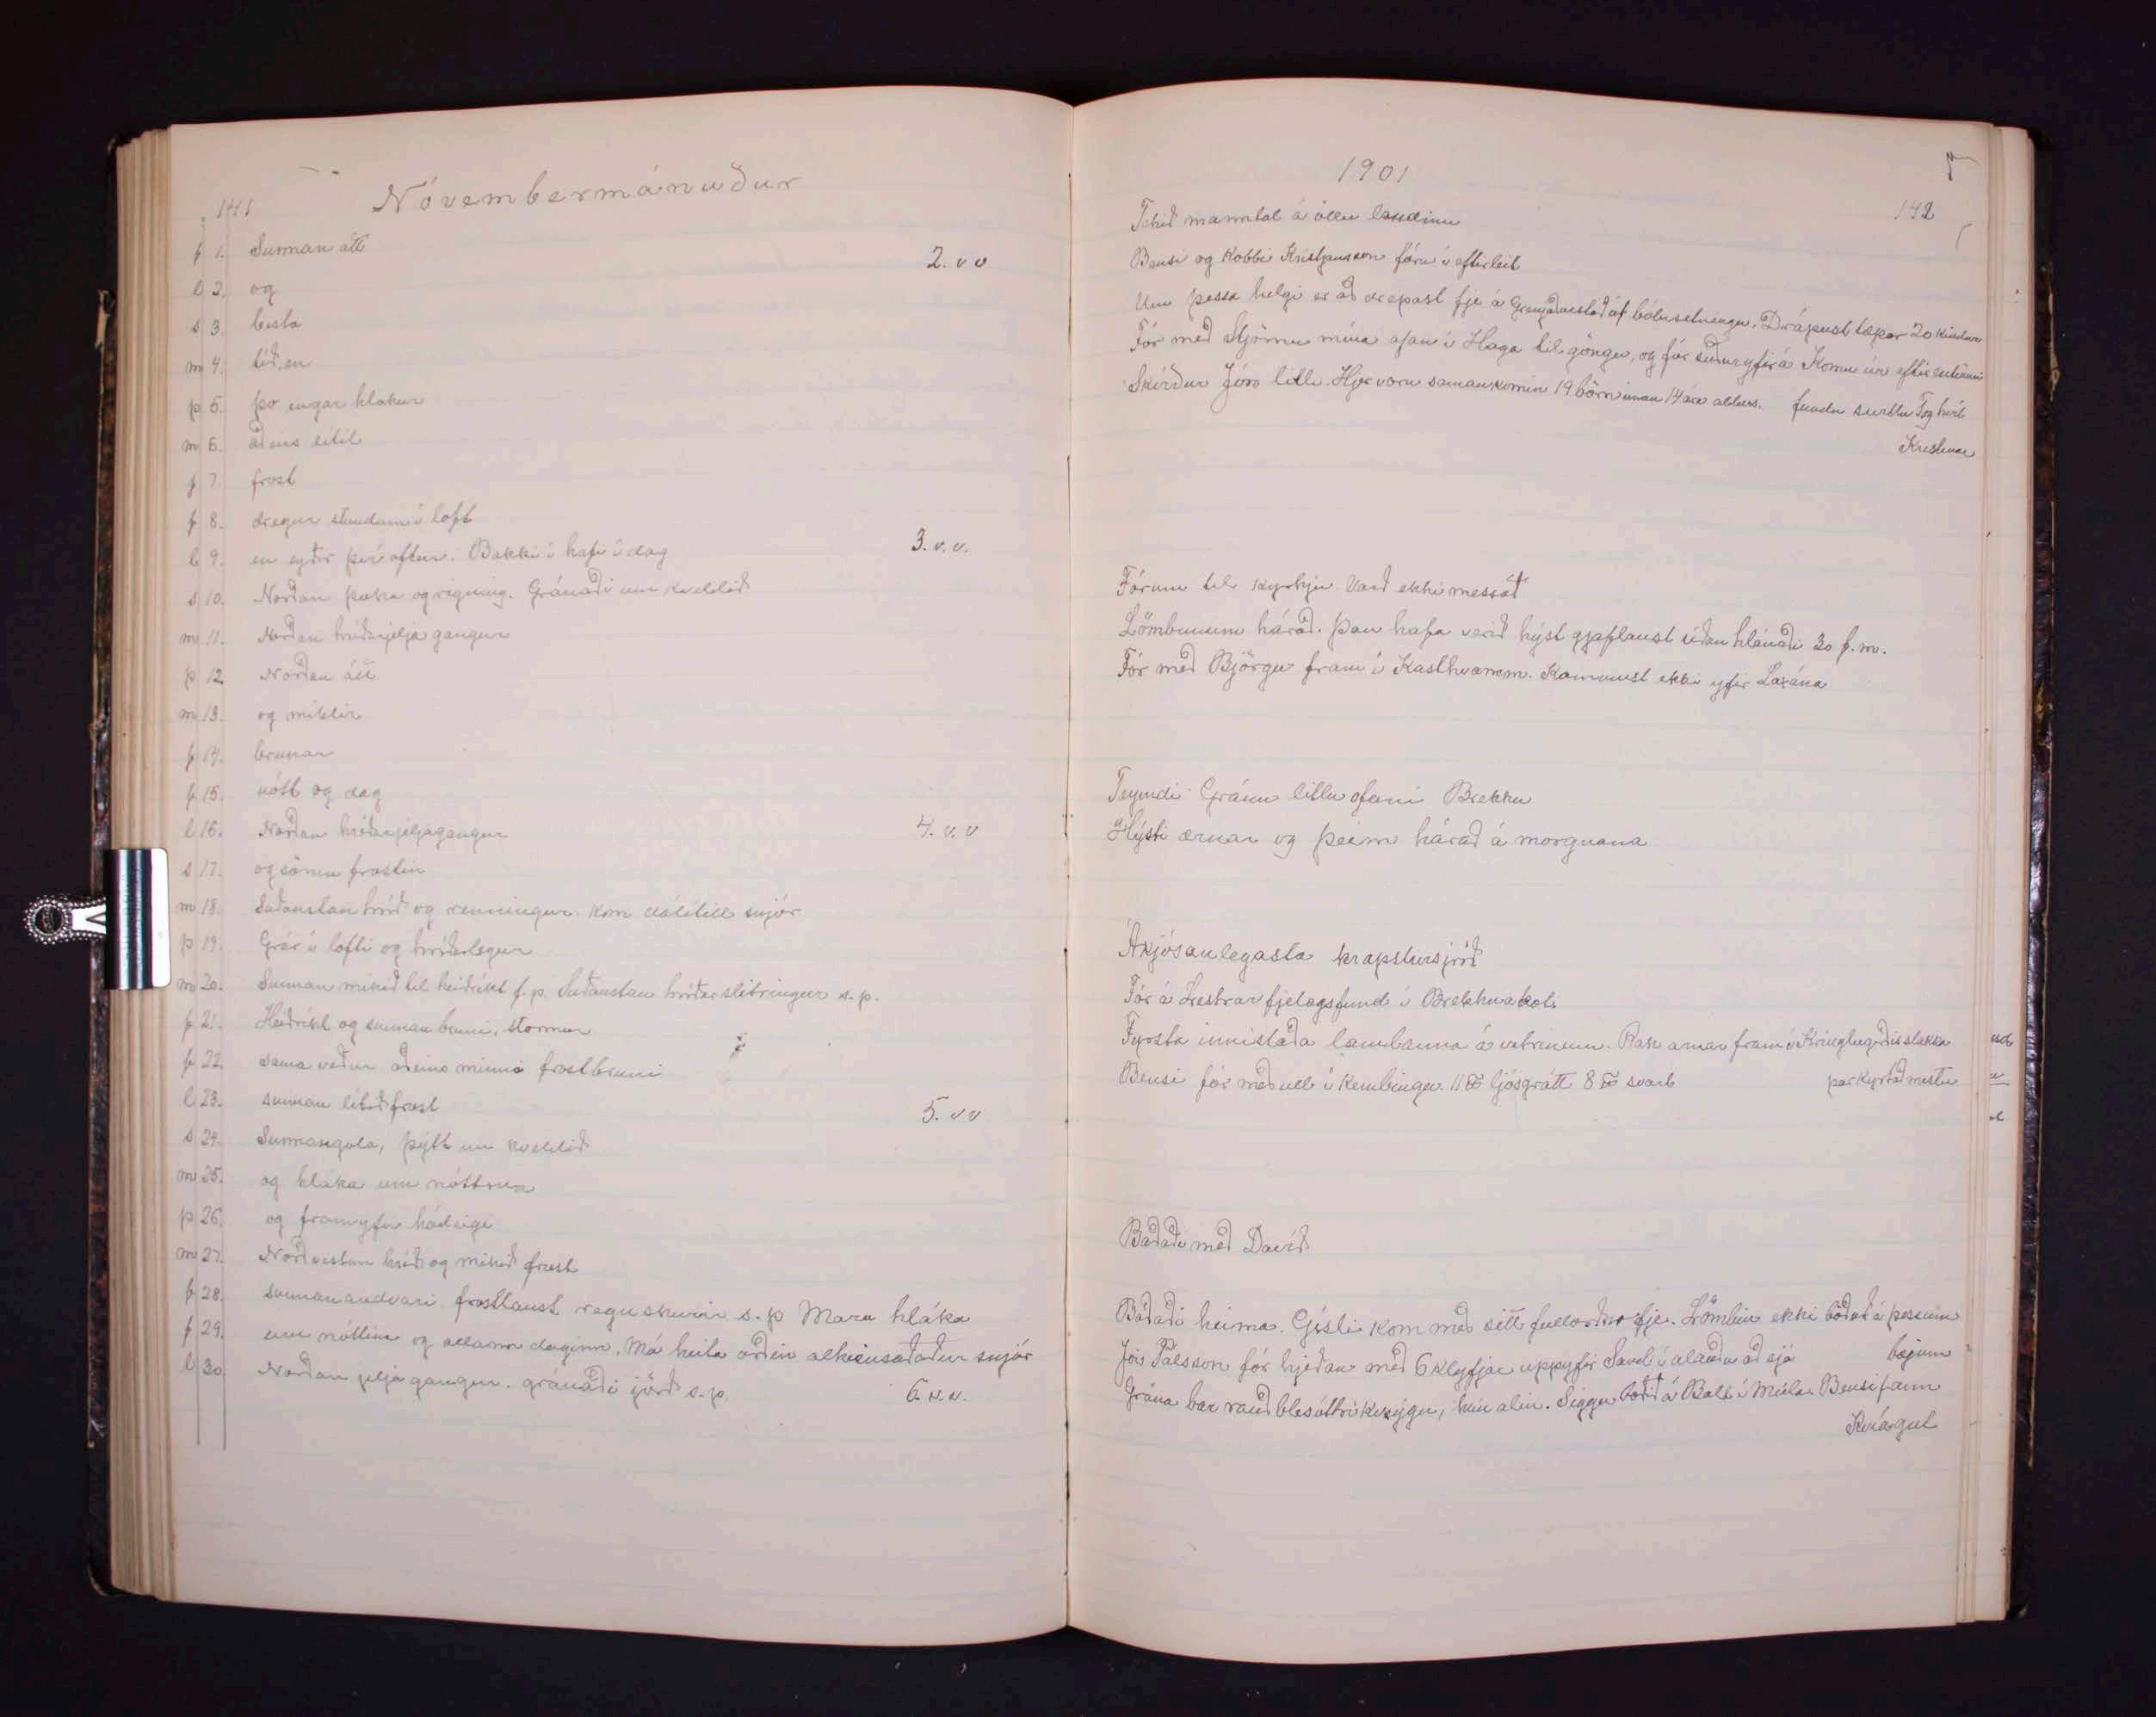 141
Nóvembermánuður
f 1. Sunnan átt
l 2. og
2. v v
s 3. besta
m 4. tíð, en
þ 5. þó engar hlákur
m 6. aðeins lítil
f 7. frost
f 8. dregur stundum í loft
l 9. en eyðir því aftur. Bakki í hafi í dag
3. v. v.
s 10. Norðan þoka og rigning. Gránaði um kveldið
m 11. Norðan hríðarjelja gangur
þ 12 Norðan átt
m 13. og miklir
f 14. brunar
f 15. nótt og dag
l 16. Norðan hríðarjeljagangur
4. v. v
s 17. og sömu frostin
m 18. Suðaustan hríð og renningur. Kom dálítill snjór
þ 19. Grár í lofti og hríðarlegur
m 20. Sunnan mikið til heiðríkt f. p. Suðaustan hríðarslitringur s. p.
f 21. Heiðríkt og sunnan bruni, stormur
f 22. sama veður aðeins minni frostbruni
l 23. sunnan lítið frost
5. v v
s 24. Sunnangola, þýtt um kveldið
m 25. og hláka um nóttina
þ 26. og framyfir hádeigi
m 27. Norðvestan hríð og mikið frost
f 28. sunnanandvari frostlaust regnskúrir s. p Mara hláka
f 29. um nóttina og allann daginn. Má heita orðin alhreinsaðaður snjór
l 30. Norðan jeljagangur. gránaði jörð s. p.
6. v. v.
1901
142
Tekið manntal á öllu landinu
Bensi og Kobbi Kristjansson fóru í eftirleit
Um þessa helgi er að drepast fje á Grenjaðarstað af bólusetningu. Drápust tæpar 20 kindur
Fór með Stjörnu mína ofan í Haga til göngu, og fór suður yfir á Komu úr eftirleitinni
Skírður Jón litli. Hjer voru samankomin 19 börn innan 14 ára aldurs. fundu surtlu
Fórum til kyrkju. Varð ekki messað
Lömbunum hárað. Þau hafa verið hýst gjaflaust síðan hlánaði 30 f. m.
Fór með Björgu fram í Kasthvamm. Komumst ekki yfir Laxána
Teymdi Gránu litlu ofaní Brekku
Hýsti ærnar og þeim hárað á morgnana
Ákjósanlegasta krapstursjörð
Fór á Lestrarfjelagsfund í Brekknakoti
Fyrsta innistaða lambanna á vetrinum. Rak ærnar fram í Kringlugerðisslakka
Bensi fór með ull í Kembingu. 11 ℔ ljósgrátt 8 ℔ svart
Baðaði með Davíð
Baðaði heima. Gísli kom með sitt fullorðna fje. Lömbin ekki böðuð á þessum
bæjum
Jói Pálsson fór hjeðan með 6 klyfjar uppyfir
Grána bar rauðblesóttri kvígu, hún alin. Siggu boðið á Ball í Múla. Bensi fann